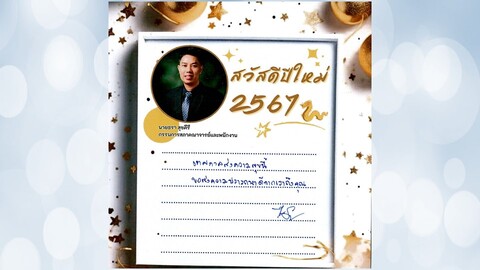 สวัสดีปีใหม่
2567
กรรมการสภาคณาจารย์และพนักงาน
เทศกาลส่งความสุขนี้
ขอส่งความปรารถนาดีจากเราถึงคุณ